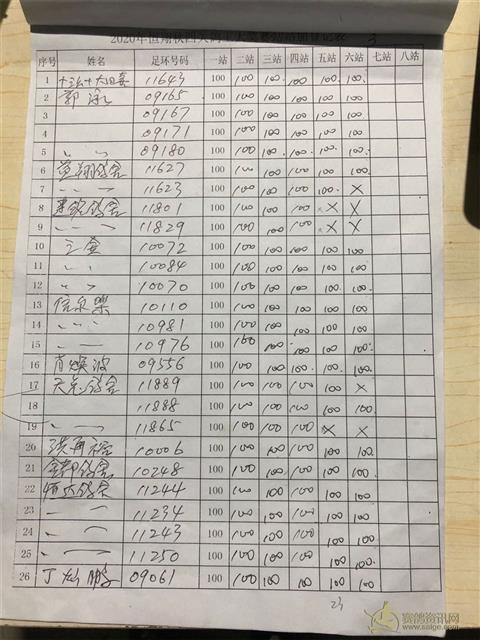 序号 姓名 足环号码 一站 二站 三站 四站 五站 六站 七站 八站
1 11643 100 100 100 100 100 100
2 郭 09165 100 100 100 100 100 100
3 09167 100 100 100 100 100 100
4 09171 100 100 100 100 100 100
5 09180 100 100 100 100 100 100
6 11627 100 100 100 100 100 100
7 11623 100 100 100 100 100 ×
8 11801 100 100 100 100 × ×
9 11829 100 100 100 100 × ×
10 10072 100 100 100 100 100 100
11 10084 100 100 100 100 100 100
12 10070 100 100 100 100 100 100
13 10110 100 100 100 100 100 100
14 10981 100 100 100 100 100 100
15 10976 100 100 100 100 100 100
16 肖焕波 09556 100 100 100 100 100 100
17 11889 100 100 100 100 100 ×
18 11888 100 100 100 100 100 100
19 11865 100 100 100 100 × ×
20 10006 100 100 100 100 100 100
21 10248 100 100 100 100 100 100
22 11244 100 100 100 100 100 100
23 11234 100 100 100 100 100 100
24 11243 100 100 100 100 100 100
25 11250 100 100 100 100 100 100
26 丁 鹏 09061 100 100 100 100 100 100
23
赛鸽资讯网
www.saige.com